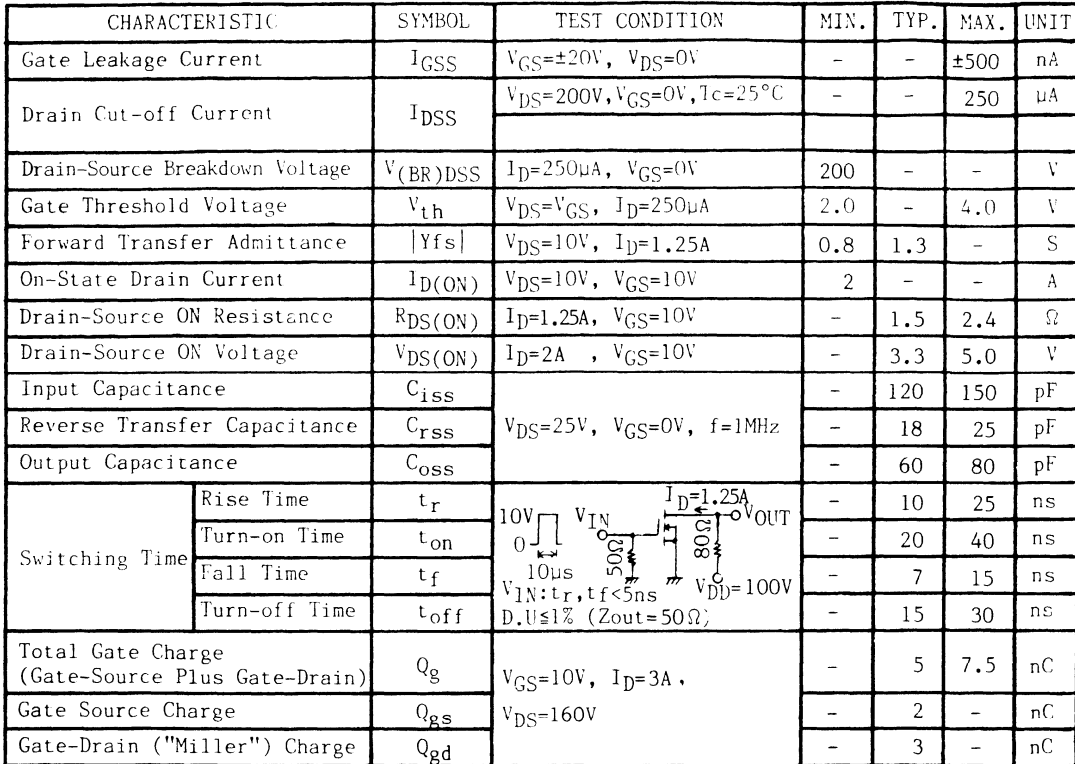 CHARACTERISTIC SYMBOL TEST CONDITION MIN. TYP. MAX. UNIT
Gate Leakage Current IGSS VGS=±20V, VDS=0V - - ±500 nA
Drain Cut-off Current IDSS VDS=200V,VGS=0V,Tc=25°C - - 250 μA
Drain-Source Breakdown Voltage V(BR)DSS ID=250μA, VGS=0V 200 - - V
Gate Threshold Voltage Vth VDS=VGS, ID=250μA 2.0 - 4.0 V
Forward Transfer Admittance |Yfs| VDS=10V, ID=1.25A 0.8 1.3 - S
On-State Drain Current ID(ON) VDS=10V, VGS=10V 2 - - A
Drain-Source ON Resistance RDS(ON) ID=1.25A, VGS=10V - 1.5 2.4 Ω
Drain-Source ON Voltage VDS(ON) ID=2A , VGS=10V - 3.3 5.0 V
Input Capacitance Ciss - 120 150 pF
Reverse Transfer Capacitance Crss VDS=25V, VGS=0V, f=1MHz - 18 25 pF
Output Capacitance Coss - 60 80 pF
Switching Time
Rise Time tr - 10 25 ns
Turn-on Time ton - 20 40 ns
Fall Time tf - 7 15 ns
Turn-off Time toff - 15 30 ns
ID=1.25A
10V VIN VOUT
0 50Ω 80Ω
10μs
VDD=100V
VIN:tr,tf<5ns
D.U≦1% (Zout=50Ω)
Total Gate Charge
(Gate-Source Plus Gate-Drain) Qg VGS=10V, ID=3A, - 5 7.5 nC
Gate Source Charge Qgs VDS=160V - 2 - nC
Gate-Drain ("Miller") Charge Qgd - 3 - nC